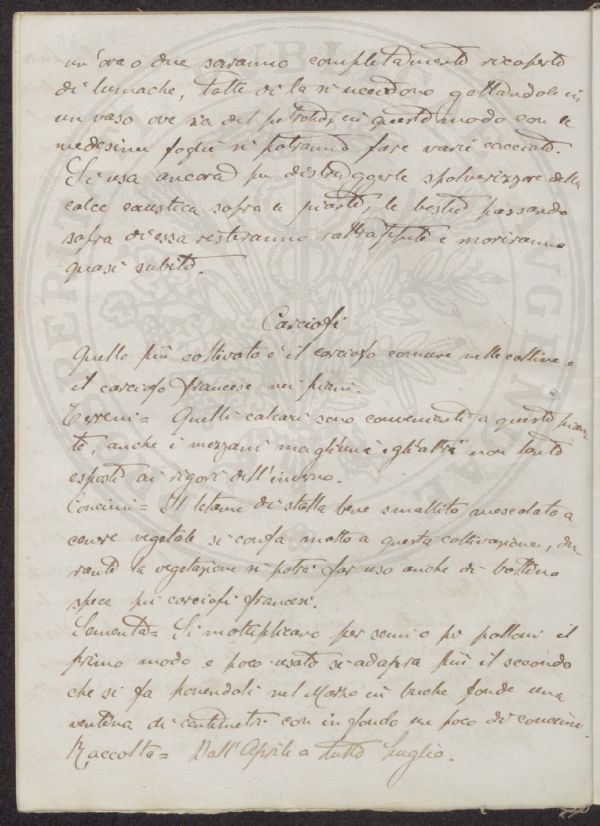 un'ora o due saranno completamente ricoperte
di lumache, tolte di la si uccidono gettandole in
un vaso ove sia del petrolio, in questo modo con le
medesime foglie si potranno fare varie cacciate.
Si usa ancora per distruggerle spolverizzare della
calce caustica sopra le piante, le bestie passando
sopra di essa resteranno rattrappite e moriranno
quasi subito.
Carciofi
Quello più coltivato è il carciofo comune nelle colline e
il carciofo francese nei piani.
Terreni = Quelli calcari sono convenienti a queste pian
te, anche i mezzani magli umi e gli altri non tanto
esposti ai rigori dell'inverno.
Concimi = Il letame di stalla bene smaltito mescolato a
cenere vegetale si confa molto a questa coltivazione, du
rante la vegetazione si potrà far uso anche di bottino
specie pei carciofi francesi.
Sementa = Si moltiplicano per semi o per polloni il
primo modo è poco usato si adopra più il secondo
che si fa ponendoli nel Marzo in buche fonde una
ventina di centimetri con in fondo un poco di concime.
Raccolta = Dall'Aprile a tutto Luglio.